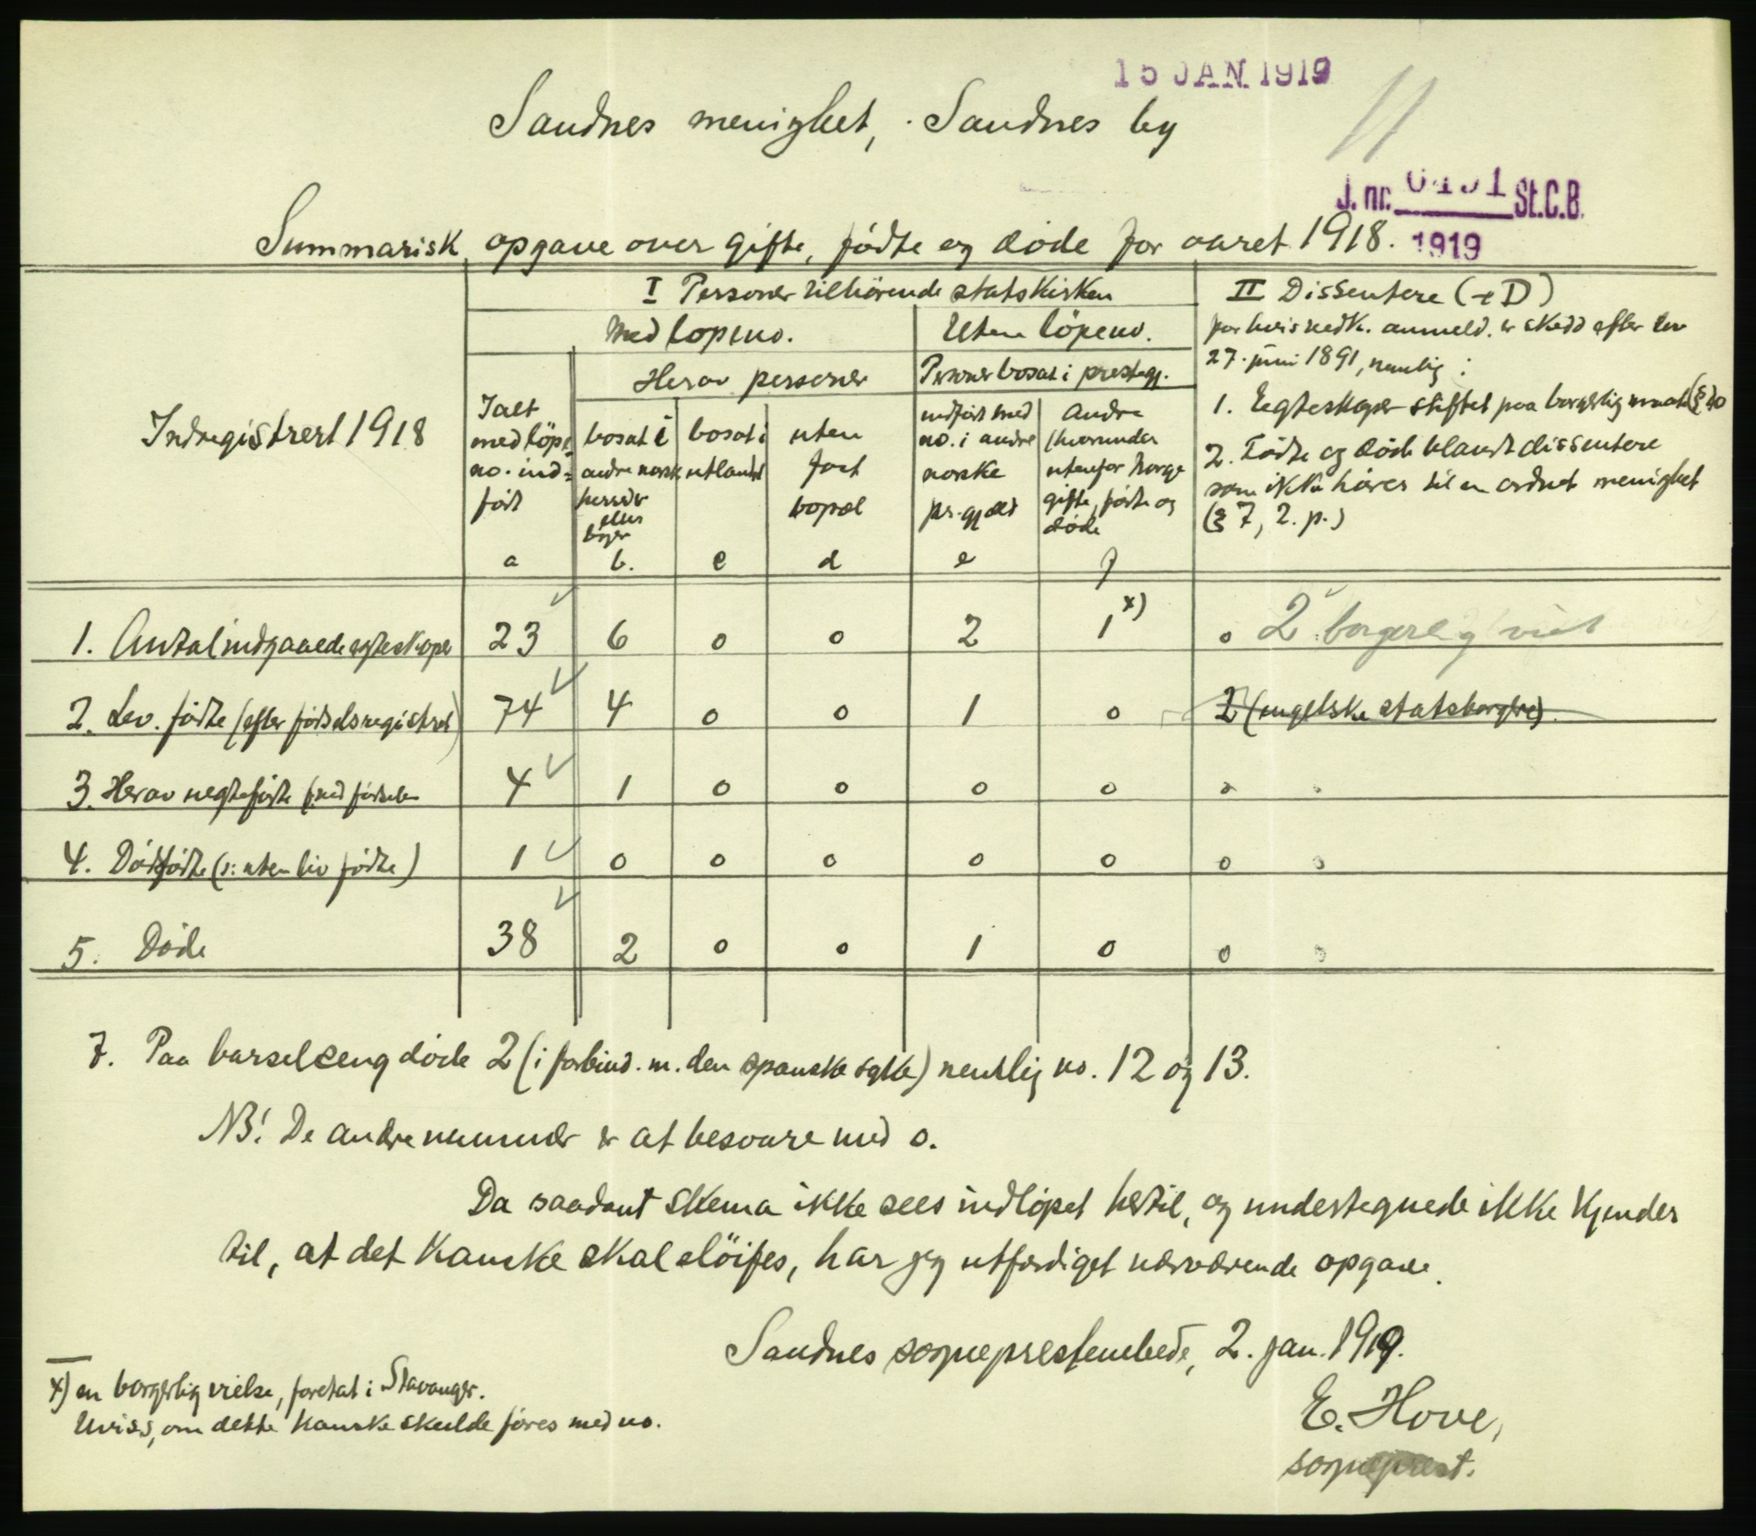 15 JAN 1919
Sandnes menighet, Sandnes by
J. nr. St.C.B.
1919
Summarisk opgave over gifte, fødte og døde for aaret 1918.
I Personer tilhörende statskirken
II Dissentere (+ D)
Med løpeno.
Uten löpeno.
for hvis vedk. anmeld. er skedd efter lov
27. juni 1891, nemlig:
Herav personer
Personer bosat i prestegj.
Indregistrert 1918
Ialt
med löpe
no. ind-
ført
bosat i
andre norske
herreder
eller
byer
bosat i
utlandet
uten
fast
bopæl
indført med
no. i andre
norske
pr.gjæld
Andre
(herunder
utenfor Norge
gifte, fødte og
døde
1. Egteskaper stiftet paa borgerlig maate (§ 10
2. Fødte og døde blandt dissentere
som ikke hører til en ordnet menighet
(§ 7, 2. p.)
a b. c d e f
1. Antal indgaaede egteskaper 23 6 0 0 2 1 x) 0 2 borgerlig viet
2. Lev. fødte (efter fødselsregistret) 74 4 0 0 1 0 2 (engelske statsborgere)
3. Herav uegtefødte (ved fødselen 4 1 0 0 0 0 0 0
4. Dødfødte (ɔ: uten liv fødte) 1 0 0 0 0 0 0 0
5. Døde 38 2 0 0 1 0 0 0
7. Paa barselseng døde 2 (i forbind. m. den spanske syke) nemlig no. 12 og 13.
NB! De andre nummer er at besvare med 0.
Da saadant skema ikke sees indløpet hertil, og undertegnede ikke kjender
til, at det kanske skal slöifes, har jeg utfærdiget nærværende opgave.
Sandnes sogneprestembede, 2. jan. 1919.
x) en borgerlig vielse, foretat i Stavanger.
Uvisst, om dette kanske skulde føres med no.
E. Hove,
sogneprest.